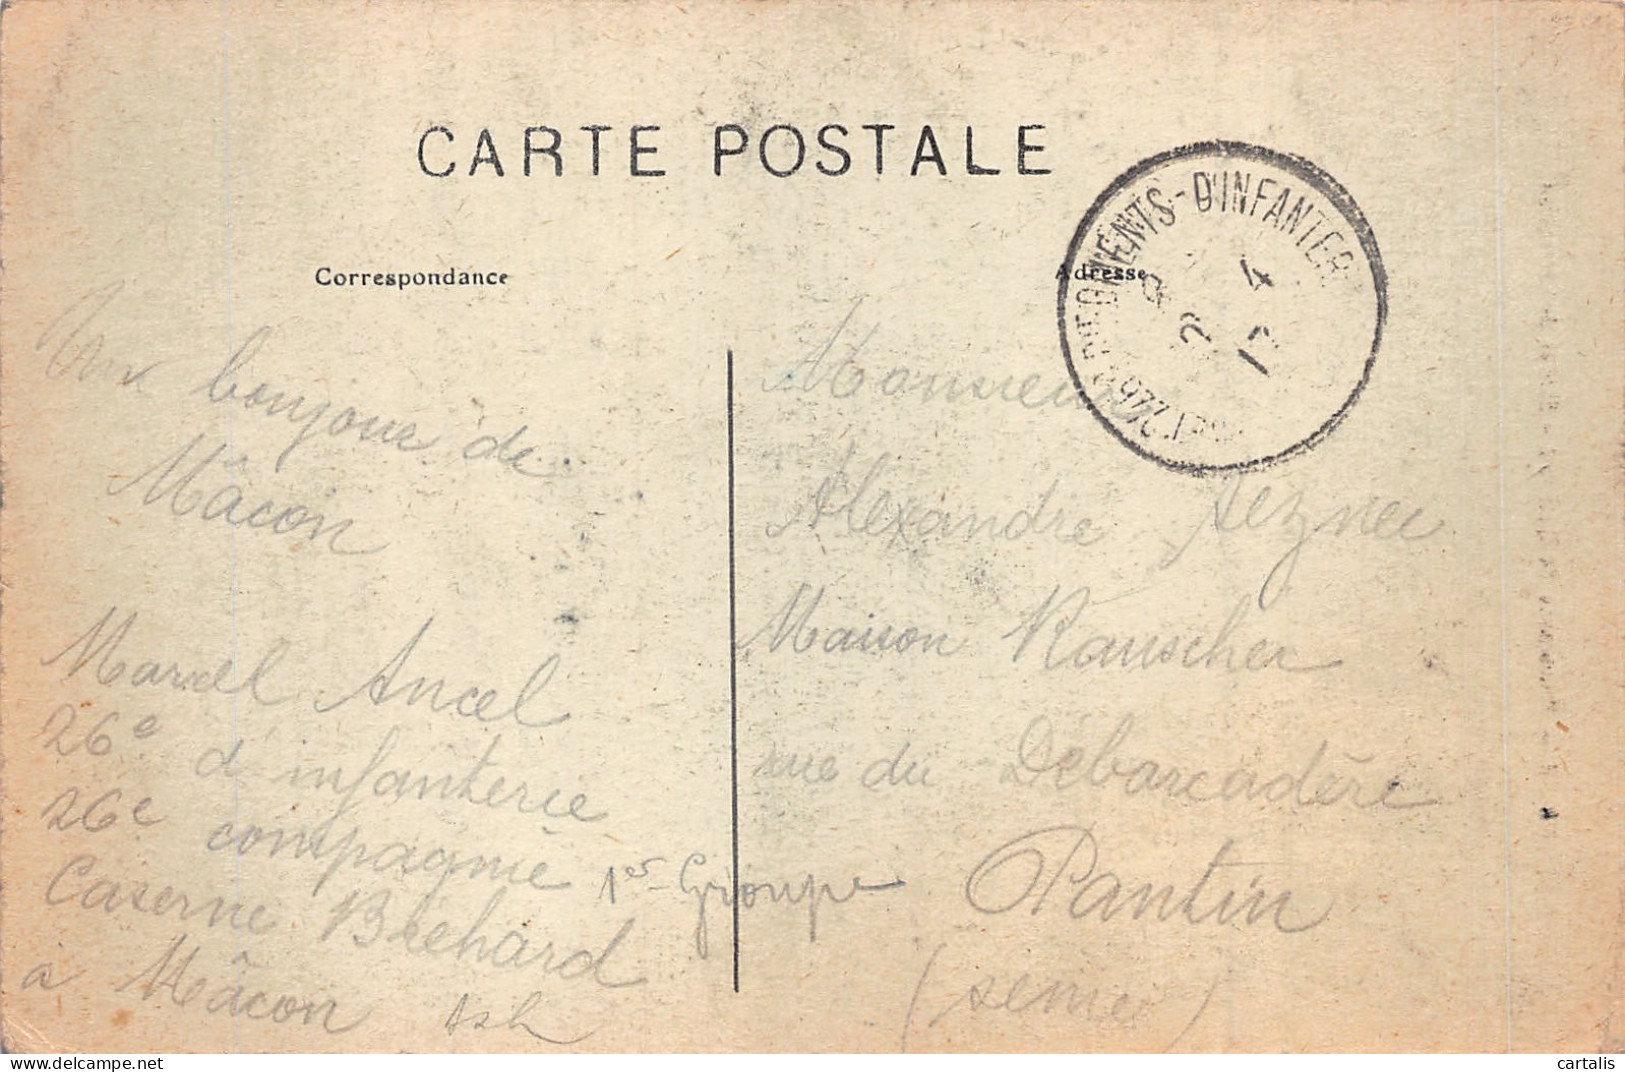 CARTE POSTALE
Correspondance
Adresse
D'INFANTERI
2 4
Un bonjour de
Mâcon
Marcel Ancel
26e d infanterie
26e compagnie 1er Groupe
Caserne Bréhard
a Mâcon
Monsieur
Alexandre
Maison Rauscher
rue du Débarcadère
Pantin
(seine)
cartalis